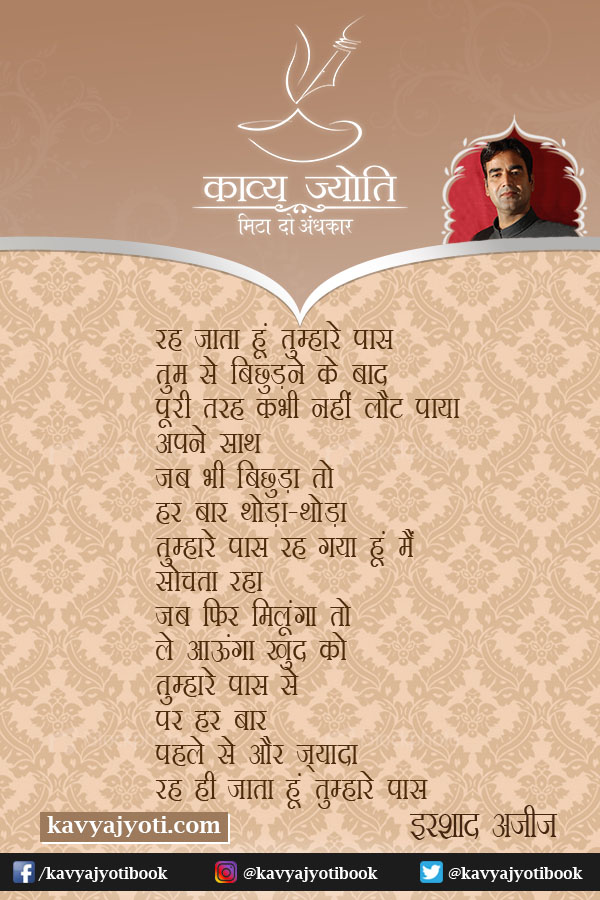 काव्य ज्योति
मिटा दो अंधकार
रह जाता हूं तुम्हारे पास
तुम से बिछुड़ने के बाद
पूरी तरह कभी नहीं लौट पाया
अपने साथ
जब भी बिछुड़ा तो
हर बार थोड़ा-थोड़ा
तुम्हारे पास रह गया हूं मैं
सोचता रहा
जब फिर मिलूंगा तो
ले आऊंगा खुद को
तुम्हारे पास से
पर हर बार
पहले से और ज़्यादा
रह ही जाता हूं तुम्हारे पास
इरशाद अजीज
kavyajyoti.com
/kavyajyotibook
@kavyajyotibook
@kavyajyotibook